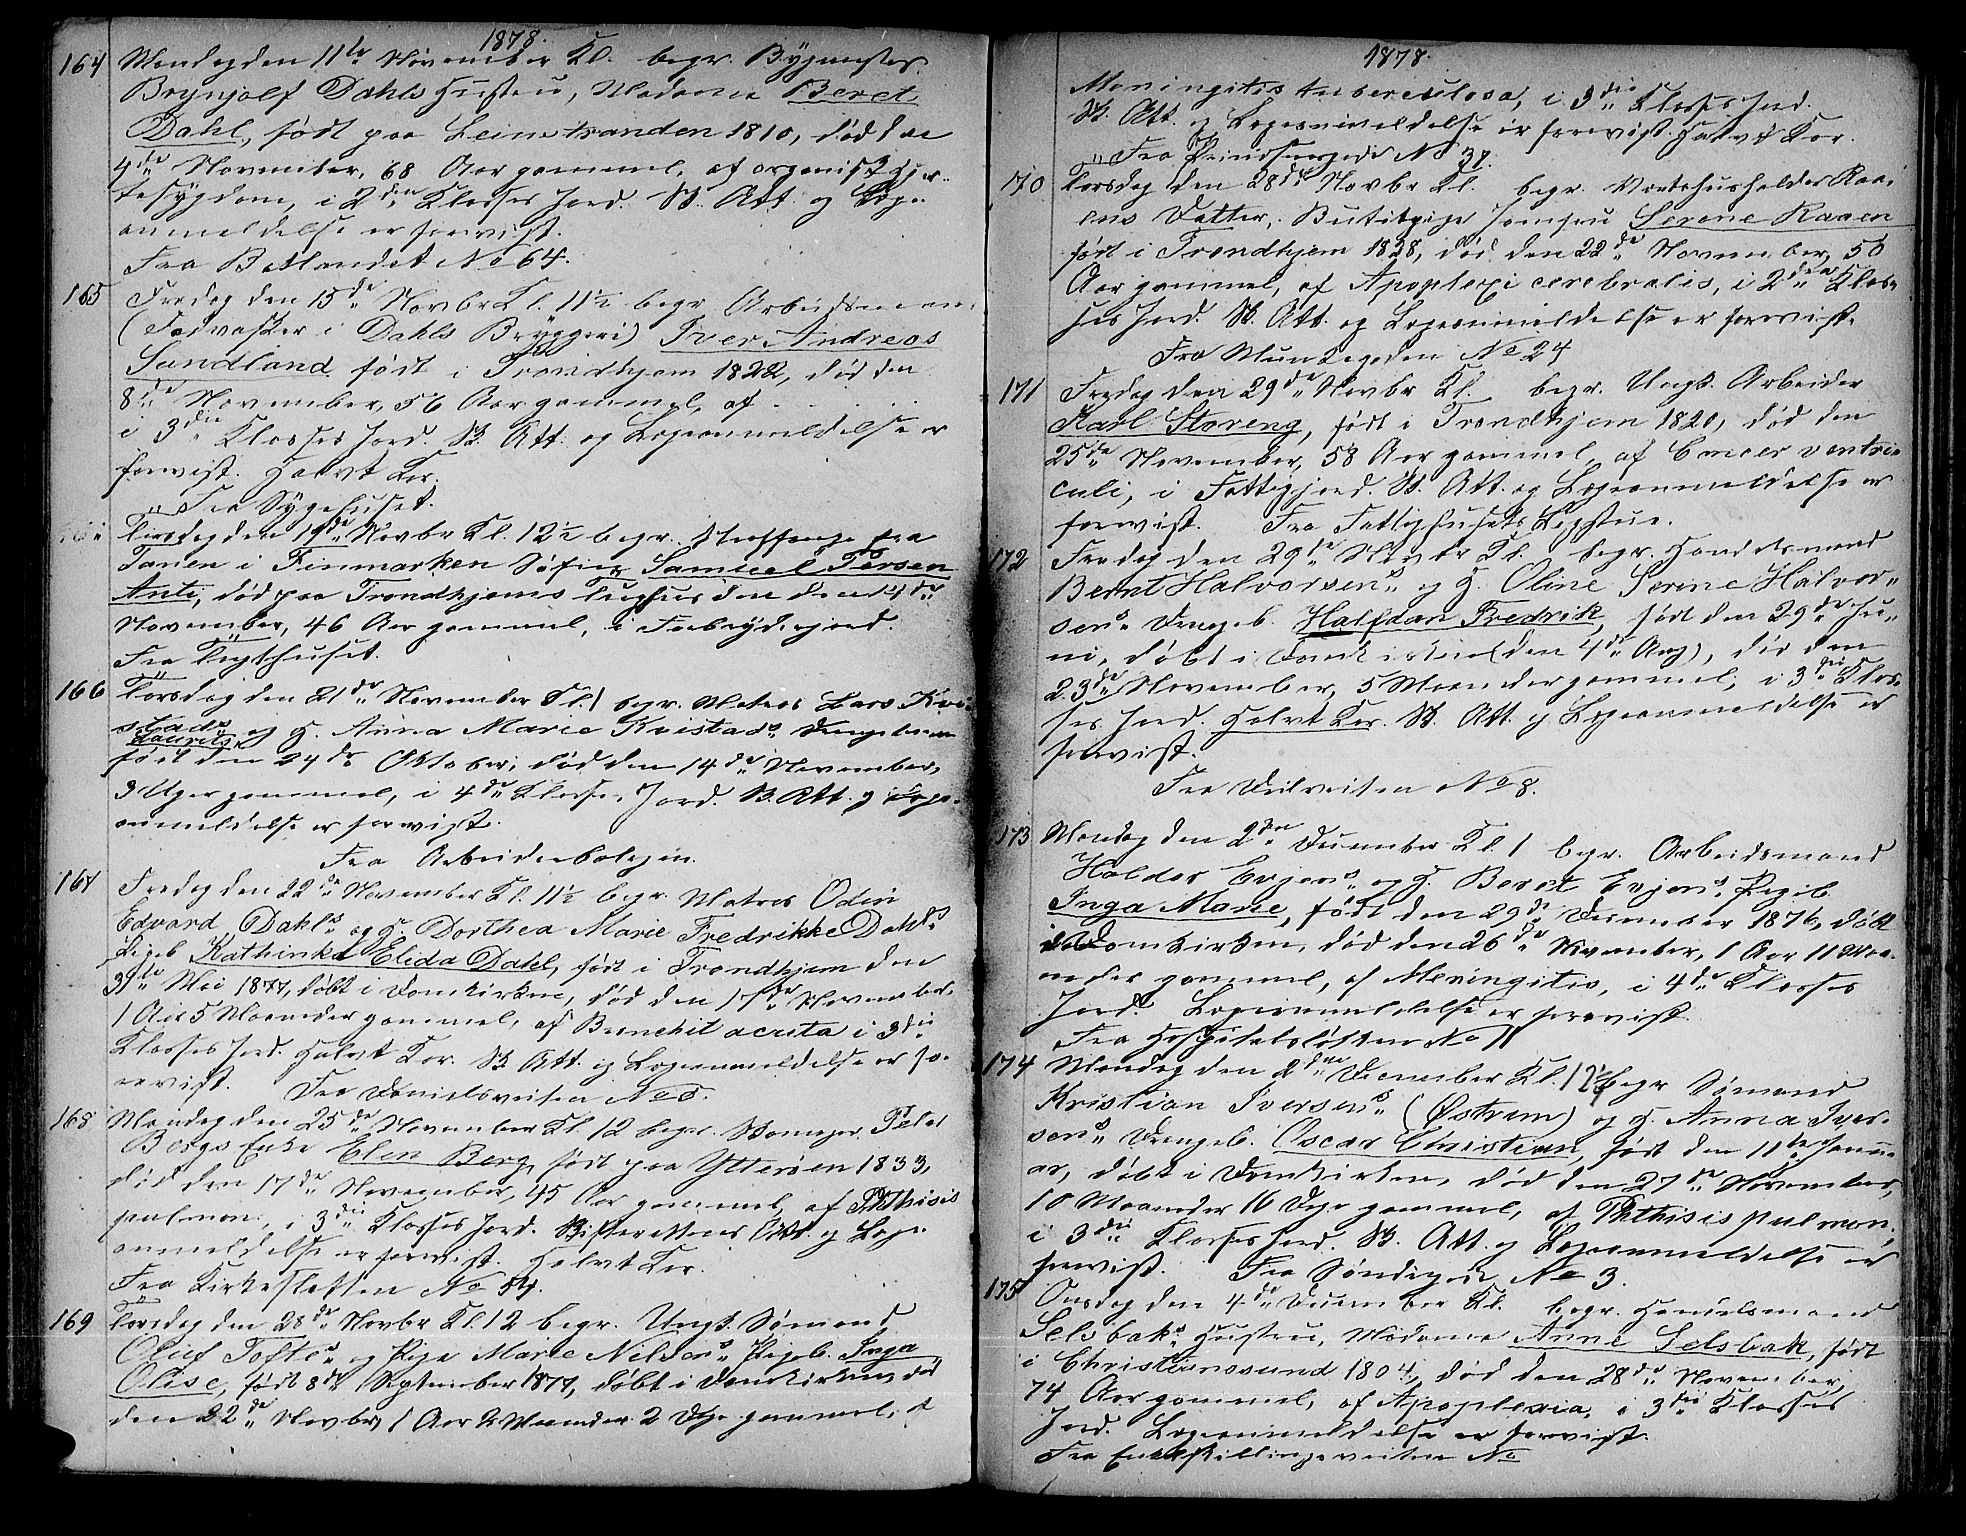 1878.
164 Mandag den 11te November Kl. begr. Bygmester
Brynjolf Dahls Hustru, Madame Beret
Dahl, født paa Leinstranden 1810, død den
4de November, 68 Aar gammel, af organisk Hjer-
tesygdom, i 2den Klasses Jord. Sk. Att. og Læge-
anmeldelse er forevist.
Fra Baklandet No 64.
165 Fredag den 15de Novbr Kl. 11½ begr. Arbeidsmand
(Fadvasker i Dahls Bryggeri) Iver Andreas
Sundland født i Trondhjem 1822, død den
8de November, 56 Aar gammel, af . . . . .
i 3die Klasses Jord. Sk. Att. og Lægeanmeldelse er
forevist. Halvt Kor.
Fra Sygehuset.
Tirsdag den 19de Novbr Kl. 12½ begr. Straffange fra
Tanen i Finmarken Søfin Samuel Persen
Anti, død paa Trondhjems Tugthus den
November, 46 Aar gammel, i Forbryderjord.
Fra Tugthuset.
166 Torsdag den 21de November Kl. 1 begr. Matros Lars Kvi-
stads og H. Anna Marie Kvistads Drengebarn
Laurits
født den 24de Oktober, død den 14de November,
3 Uger gammel, i 4de Klasses Jord. Sk. Att. og Læge-
anmeldelse er forevist.
Fra Arbeiderboligen.
167 Fredag den 22de November Kl. 11½ begr. Matros Odin
Edvard Dahls og H. Dorthea Marie Fredrikke Dahls
Pigeb. Kathinka Elida Dahl, født i Trondhjem den
31te Mai 1877, døbt i Domkirken, død den 17de November,
1 Aar 5 Maaneder gammel, af Bronchit acuta i 3die
Klasses Jord. Halvt Kor. Sk. Att. og Lægeanmeldelse er fo-
revist. Fra Danielsveiten No 5.
168 Mandag den 25de November Kl. 12 begr. Skomager Peter
Bergs Enke Elen Berg, født paa Ytterøen 1833,
død den 17de November, 45 Aar gammel, af Phthisis
pulmon., i 3die Klasses Jord. Skifterettens Att. og Læge-
anmeldelse er forevist. Halvt Kor.
Fra Kirkesletten No
169 Torsdag den 28de Novbr Kl. 12 begr. Ungk. Sømand
Oluf Toftes og Pige Marie Nilsens Pigeb. Inga
Olise, født 8de September 1877, døbt i Domkirken, død
den 22de Novbr, 1 Aar 2 Maaneder 2 Uge gammel, af
1878.
Meningitis tuberculosa, i 3die Klasses Jord.
Sk. Att. og Lægeanmeldelse er forevist. Halvt Kor.
Fra Prindsensgade No 37.
170 Torsdag den 28de Novbr Kl. begr. Vertshusholder Raa-
ens Datter, Butikpige Jomfru Serene Raaen
født i Trondhjem 1828, død den 22de November, 50
Aar gammel, af Apoplexi cerebralis, i 2den Klas-
ses Jord. Sk. Att. og Lægeanmeldelse er forevist.
Fra Munkegaden No 24
171 Fredag den 29de Novbr Kl. begr. Ungk. Arbeider
Karl Storeng, født i Trondhjem 1820, død den
25de November, 58 Aar gammel, af Cancer ventri-
culi, i Fattigjord. Sk. Att. og Lægeanmeldelse er
forevist. Fra Fattighusets Ligstue.
172 Fredag den 29de Novbr Kl. begr. Handelsmand
Bernt Halvorsens og H. Oline Serine Halvor-
sens Drengeb. Halfdan Fredrik, født den 29de Ju-
ni, døbt i Domkirken (den 4de Aug), død den
23de November, 5 Maaneder gammel, i 3die Klas-
ses Jord. Halvt Kor. Sk. Att. og Lægeanmeldelse er
forevist.
Fra No 8.
173 Mandag den 2den December Kl. 1 begr. Arbeidsmand
Haldor Evjens og H. Beret Evjens Pigeb.
Inga Marie, født den 29de December 1876, døbt
i Domkirken, død den 26de November, 1 Aar 11 Maa-
neder gammel, af Meningitis, i 4de Klasses
Jord. Lægeanmeldelse er forevist
Fra Hospitalsløkken No
174 Mandag den 2den December Kl. 12½ begr Sømand
Kristian Iversens (Østrem) og H. Anna Iver-
sens Drengeb. Oscar Christian, født den 11te Janu-
ar, døbt i Domkirken, død den 27de November,
10 Maaneder 16 Dage gammel, af Phthisis pulmon.
i 3die Klasses Jord. Sk. Att. og Lægeanmeldelse er
forevist. Fra Søndregade No 3.
175 Onsdag den 4de December Kl. begr. Handelsmand
Selsbaks Hustru, Madame Anne Selsbak, født
i Christianssund 1804, død den 28de November,
74 Aar gammel, af Apoplexia, i 3die Klasses
Jord. Lægeanmeldelse er forevist.
Fra Enkeltskillingsveiten No